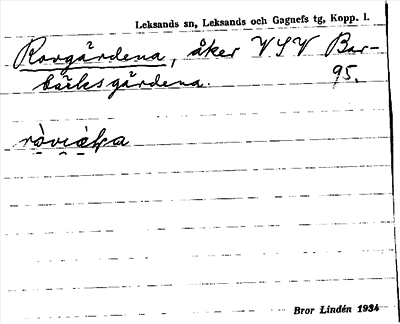 Leksands sn, Leksands och Gagnefs tg, Kopp. l.
Rovgårdena, åker VSV Bar-
bäcksgårdena. 95.
Bror Lindén 1934